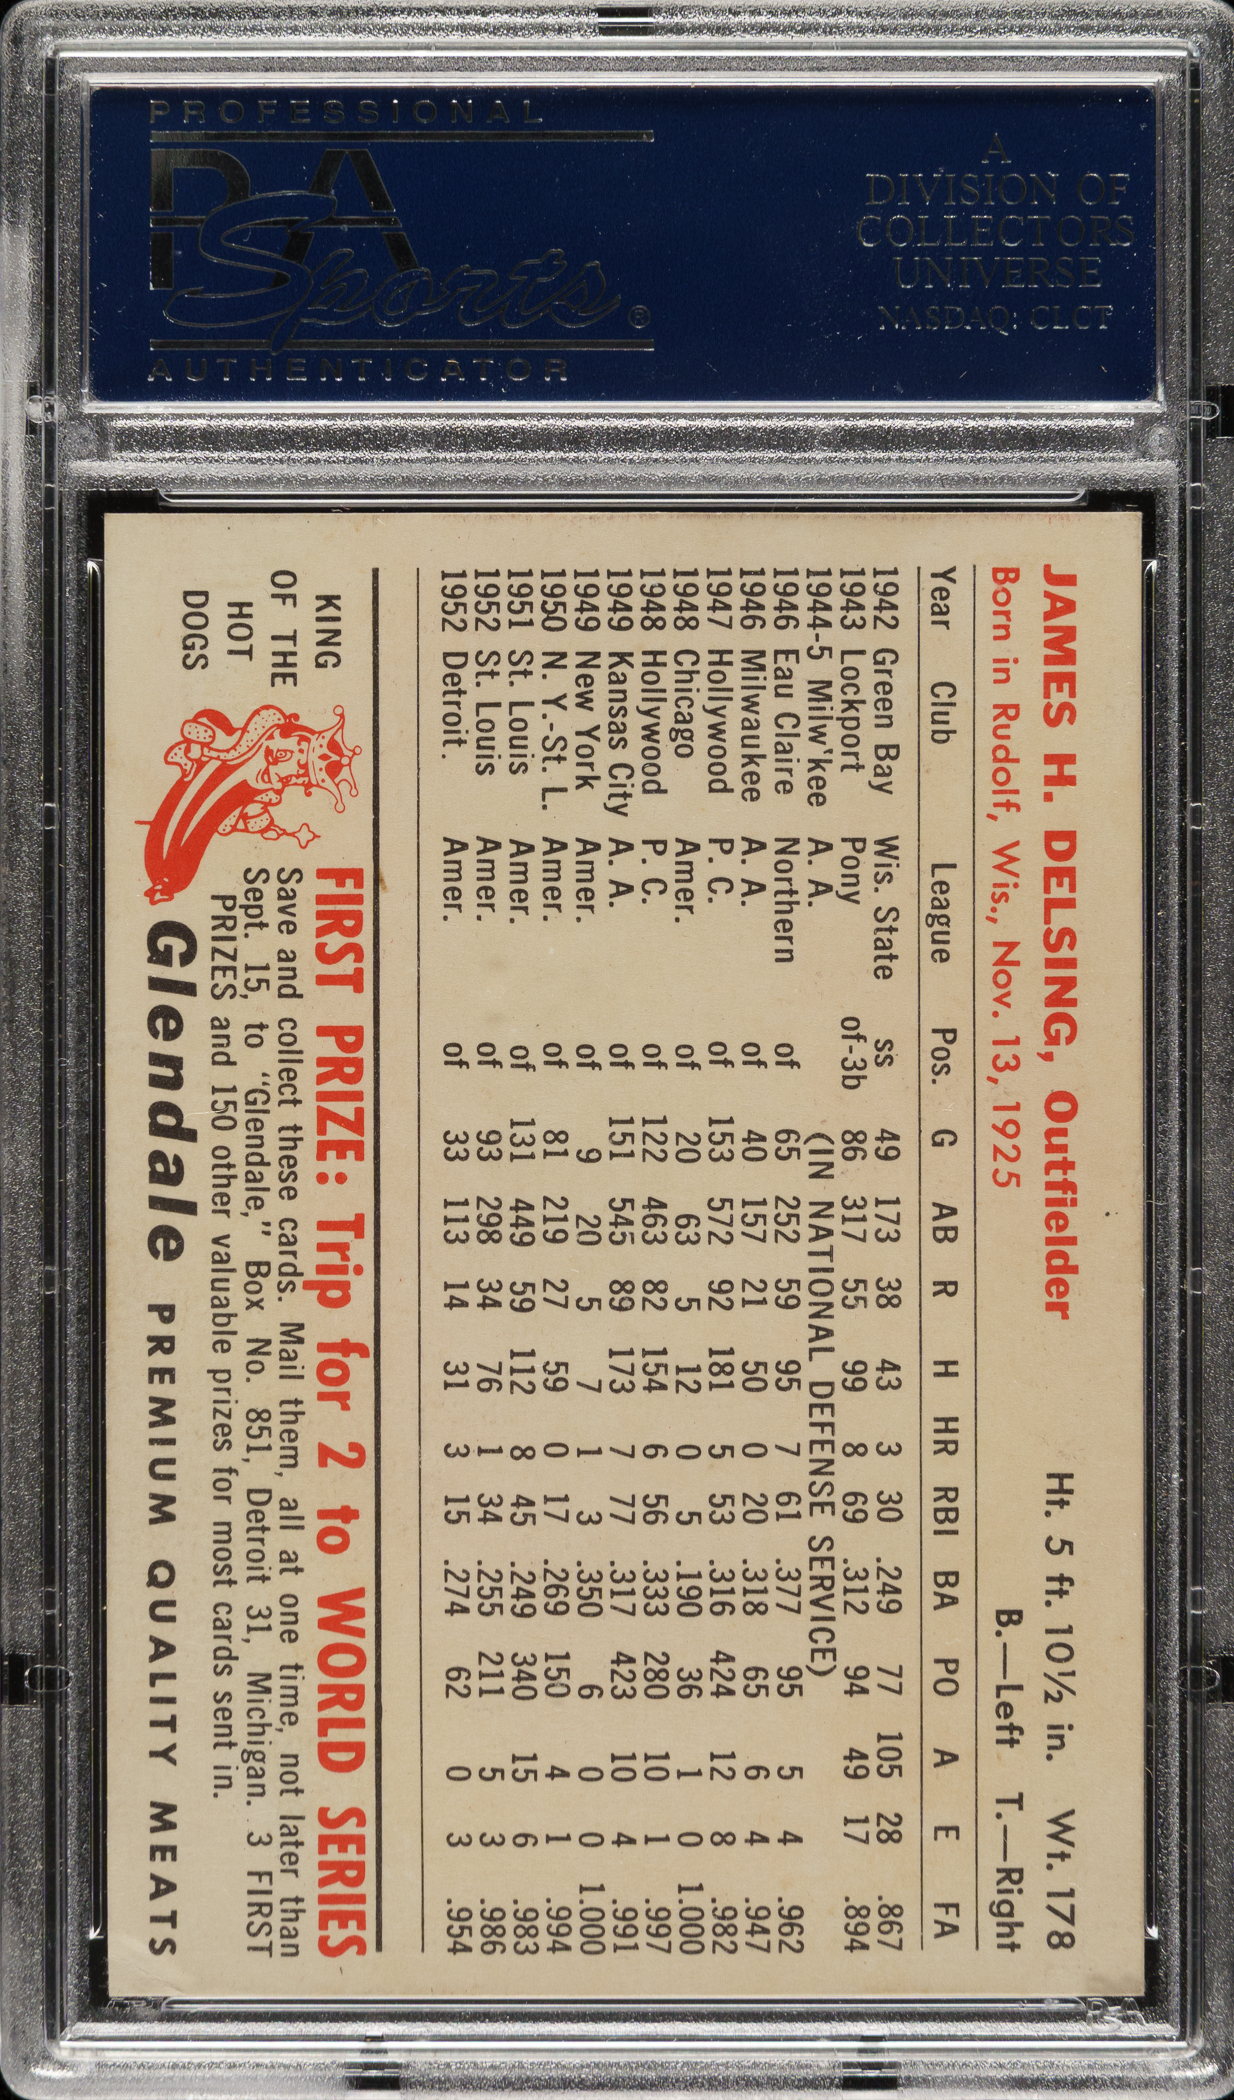 PROFESSIONAL
PSA
Sports®
AUTHENTICATOR
A
DIVISION OF
COLLECTORS
UNIVERSE
NASDAQ: CLCT
JAMES H. DELSING, Outfielder Ht. 5 ft. 10½ in. Wt. 178
Born in Rudolf, Wis., Nov. 13, 1925 B.—Left T.—Right
Year Club League Pos. G AB R H HR RBI BA PO A E FA
1942 Green Bay Wis. State ss 49 173 38 43 3 30 .249 77 105 28 .867
1943 Lockport Pony of-3b 86 317 55 99 8 69 .312 94 49 17 .894
1944-5 Milw'kee A. A. (IN NATIONAL DEFENSE SERVICE)
1946 Eau Claire Northern of 65 252 59 95 7 61 .377 95 5 4 .962
1946 Milwaukee A. A. of 40 157 21 50 0 20 .318 65 6 4 .947
1947 Hollywood P. C. of 153 572 92 181 5 53 .316 424 12 8 .982
1948 Chicago Amer. of 20 63 5 12 0 5 .190 36 1 0 1.000
1948 Hollywood P. C. of 122 463 82 154 6 56 .333 280 10 1 .997
1949 Kansas City A. A. of 151 545 89 173 7 77 .317 423 10 4 .991
1949 New York Amer. of 9 20 5 7 1 3 .350 6 0 0 1.000
1950 N. Y.-St. L. Amer. of 81 219 27 59 0 17 .269 150 4 1 .994
1951 St. Louis Amer. of 131 449 59 112 8 45 .249 340 15 6 .983
1952 St. Louis Amer. of 93 298 34 76 1 34 .255 211 5 3 .986
1952 Detroit. Amer. of 33 113 14 31 3 15 .274 62 0 3 .954
KING
OF THE
HOT
DOGS
FIRST PRIZE: Trip for 2 to WORLD SERIES
Save and collect these cards. Mail them, all at one time, not later than
Sept. 15, to "Glendale," Box No. 851, Detroit 31, Michigan. 3 FIRST
PRIZES and 150 other valuable prizes for most cards sent in.
Glendale PREMIUM QUALITY MEATS
PSA